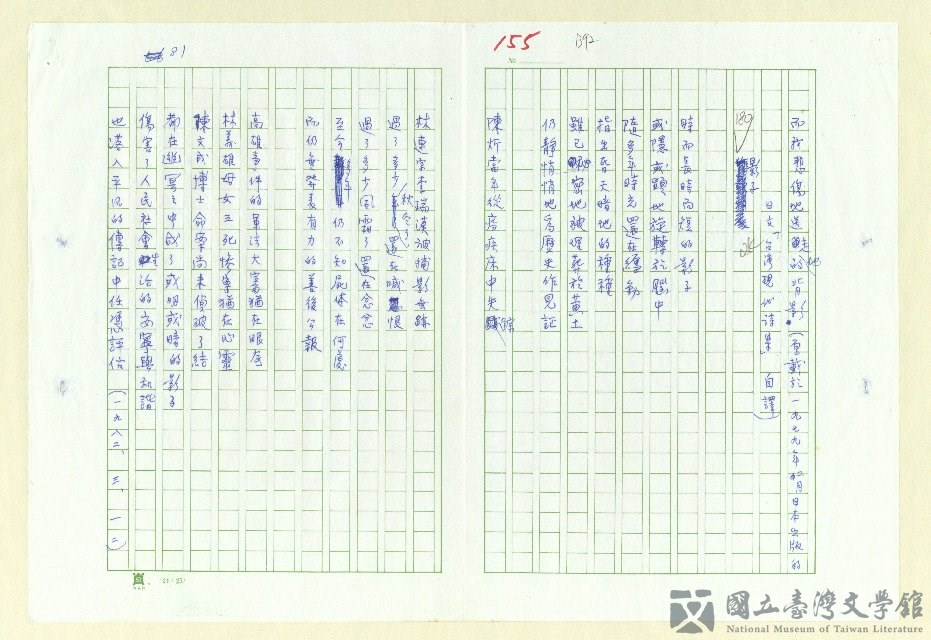 155
392
No
而我悲傷地送她的背影(原載於一九七九年二月日本出版的
日文「台灣現代詩集」自譯)
180
影子
ok
時而長時而短的影子
或隱或顯地旋轉於腦中
隨多年時光還在纏動
指出昏天暗地的種種
雖已秘密地被埋葬於黃土
仍靜悄悄地為歷史作見證
陳炘當年從瘧疾床中失踪
81
林連宗李瑞漢被捕影無踪
過了多少秋冬還在喊恨
過了多少風霜了還在念念
至今仍不知屍体在何處
而仍無發表有力的善後公報
高雄事件的軍法大審猶在眼前
林義雄母女三死快樂猶在心靈
陳文成博士命案尚未偵破了結
都在冥冥之中成了或明或暗的影子
傷害了人民社會生活的安寧與和諧
也湊入平凡的傳記中任憑評估(一九八二、三、一二)
(24×25)
國立臺灣文學館
National Museum of Taiwan Literature